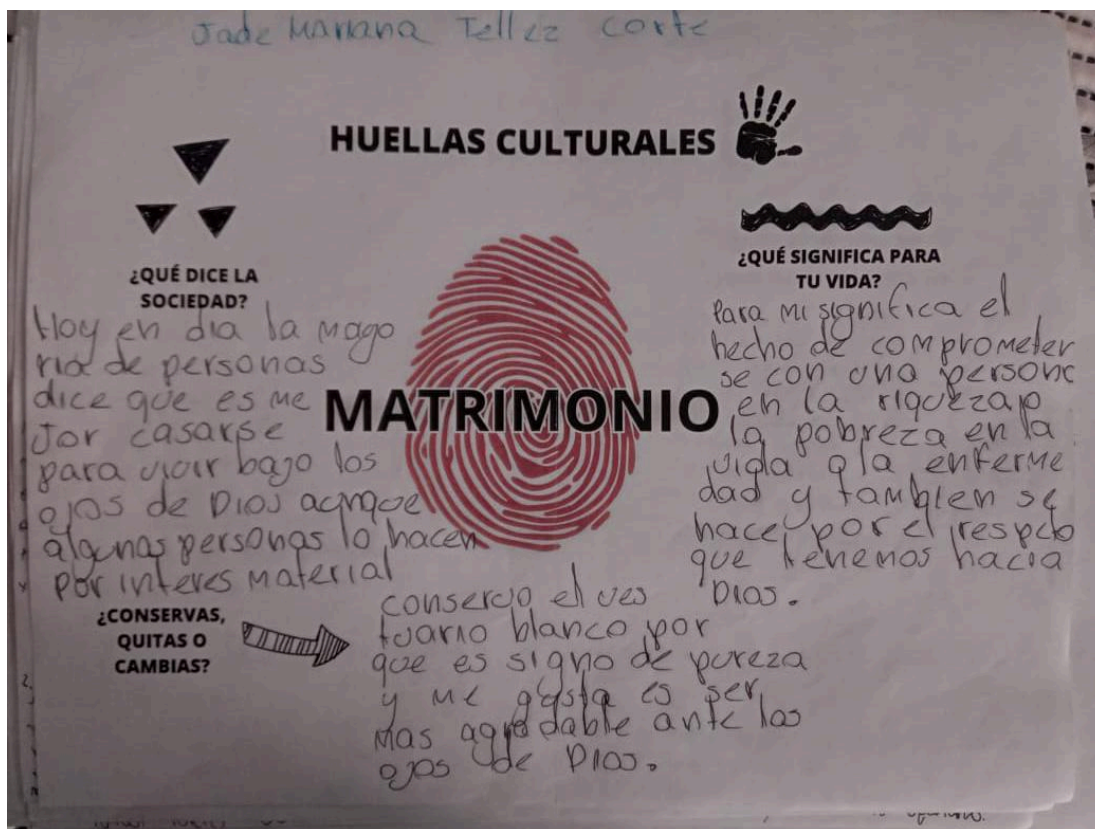 Jade Mariana Tellez Corte
HUELLAS CULTURALES
¿QUÉ DICE LA
SOCIEDAD?
Hoy en dia la mayo
ria de personas
dice que es me
Jor casarse
para vivir bajo los
ojos de Dios aunque
algunas personas lo hacen
por interes material
MATRIMONIO
¿QUÉ SIGNIFICA PARA
TU VIDA?
Para mi significa el
hecho de comprometer
se con una persona
en la riqueza o
la pobreza en la
vida o la enferme
dad y tambien se
hace por el respeto
que tenemos hacia
Dios.
¿CONSERVAS,
QUITAS O
CAMBIAS?
conservo el ves
tuario blanco por
que es signo de pureza
y me gusta es ser
mas agradable ante los
ojos de Dios.